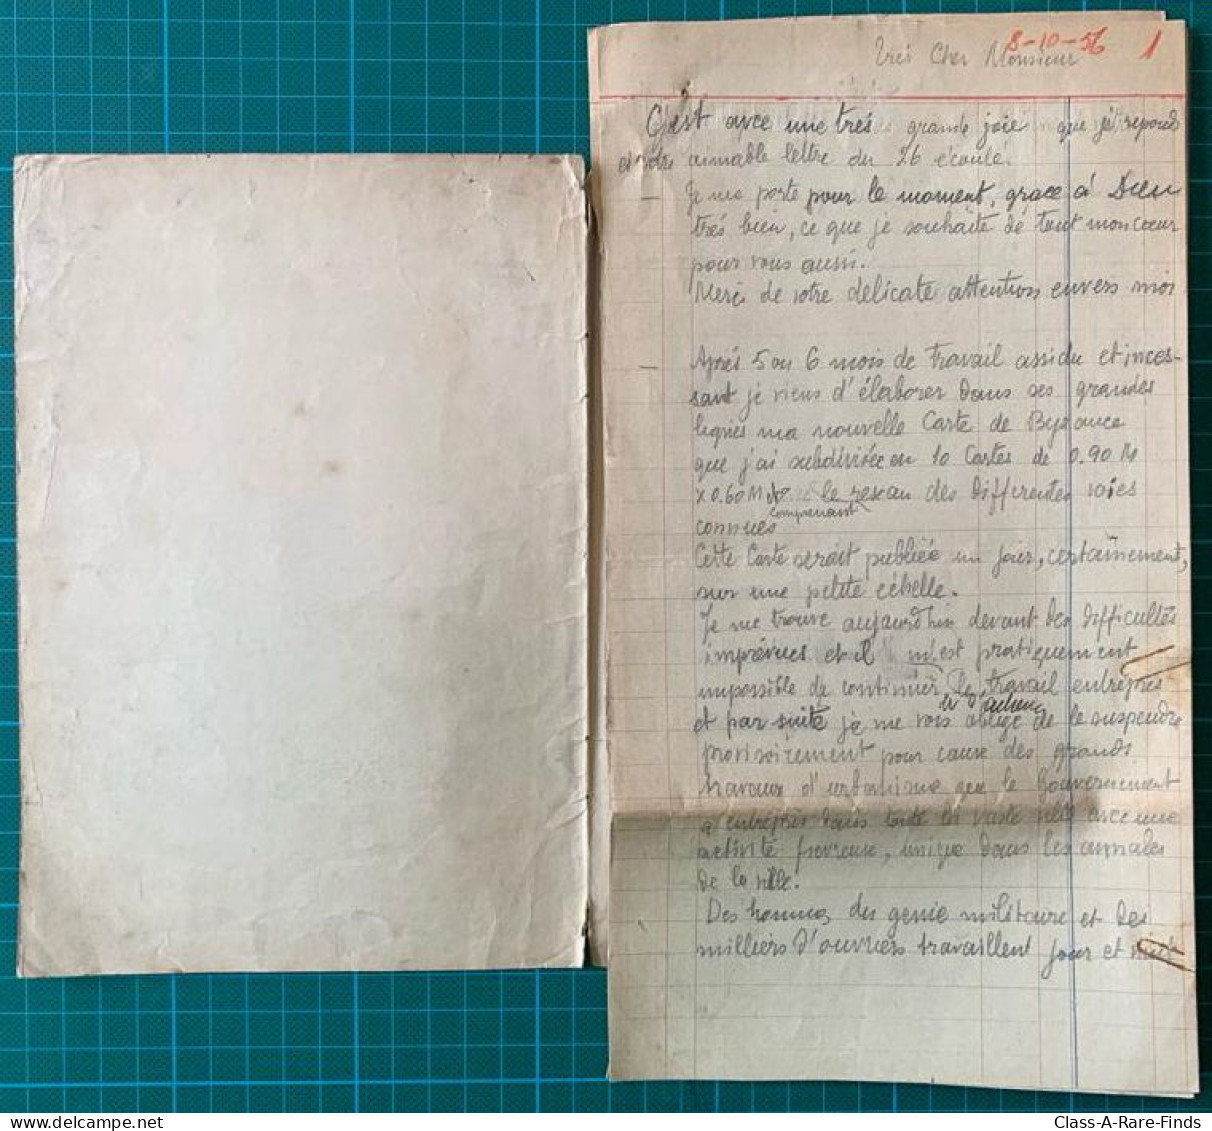 8-10-56 1
Très Cher Monsieur
C'est avec une très grande joie que j'e reponds
et votre aimable lettre du 26 écoulé.
— Je me porte pour le moment, grace à Dieu
trés bien, ce que je souhaite de tout mon cœur
pour vous aussi.
Merci de votre délicate attention envers moi
— Après 5 ou 6 mois de travail assidu et inces-
sant je viens d'élaborer dans ses grandes
lignes ma nouvelle Carte de Byzance
que j'ai subdivisée en 10 Cartes de 0.90 M
x 0.60 M le reseau des differentes voies
comprenant
connues
Cette Carte serait publiée un jour, certainement,
sur une petite échelle.
Je me trouve aujourd'hui devant des difficultés
imprévues et il m'est pratiquement
impossible de continuer le travail entrepris
et d'achever
et par suite je me vois obligé de le suspendre
provisoirement pour cause des grands
travaux d'urbanisme que le Gouvernement
a entrepris dans toute la vaste ville avec une
activité fievreuse, unique dans les annales
de la ville.
Des hommes du genie militaire et des
milliers d'ouvriers travaillent jour et nuit
Class-A-Rare-Finds